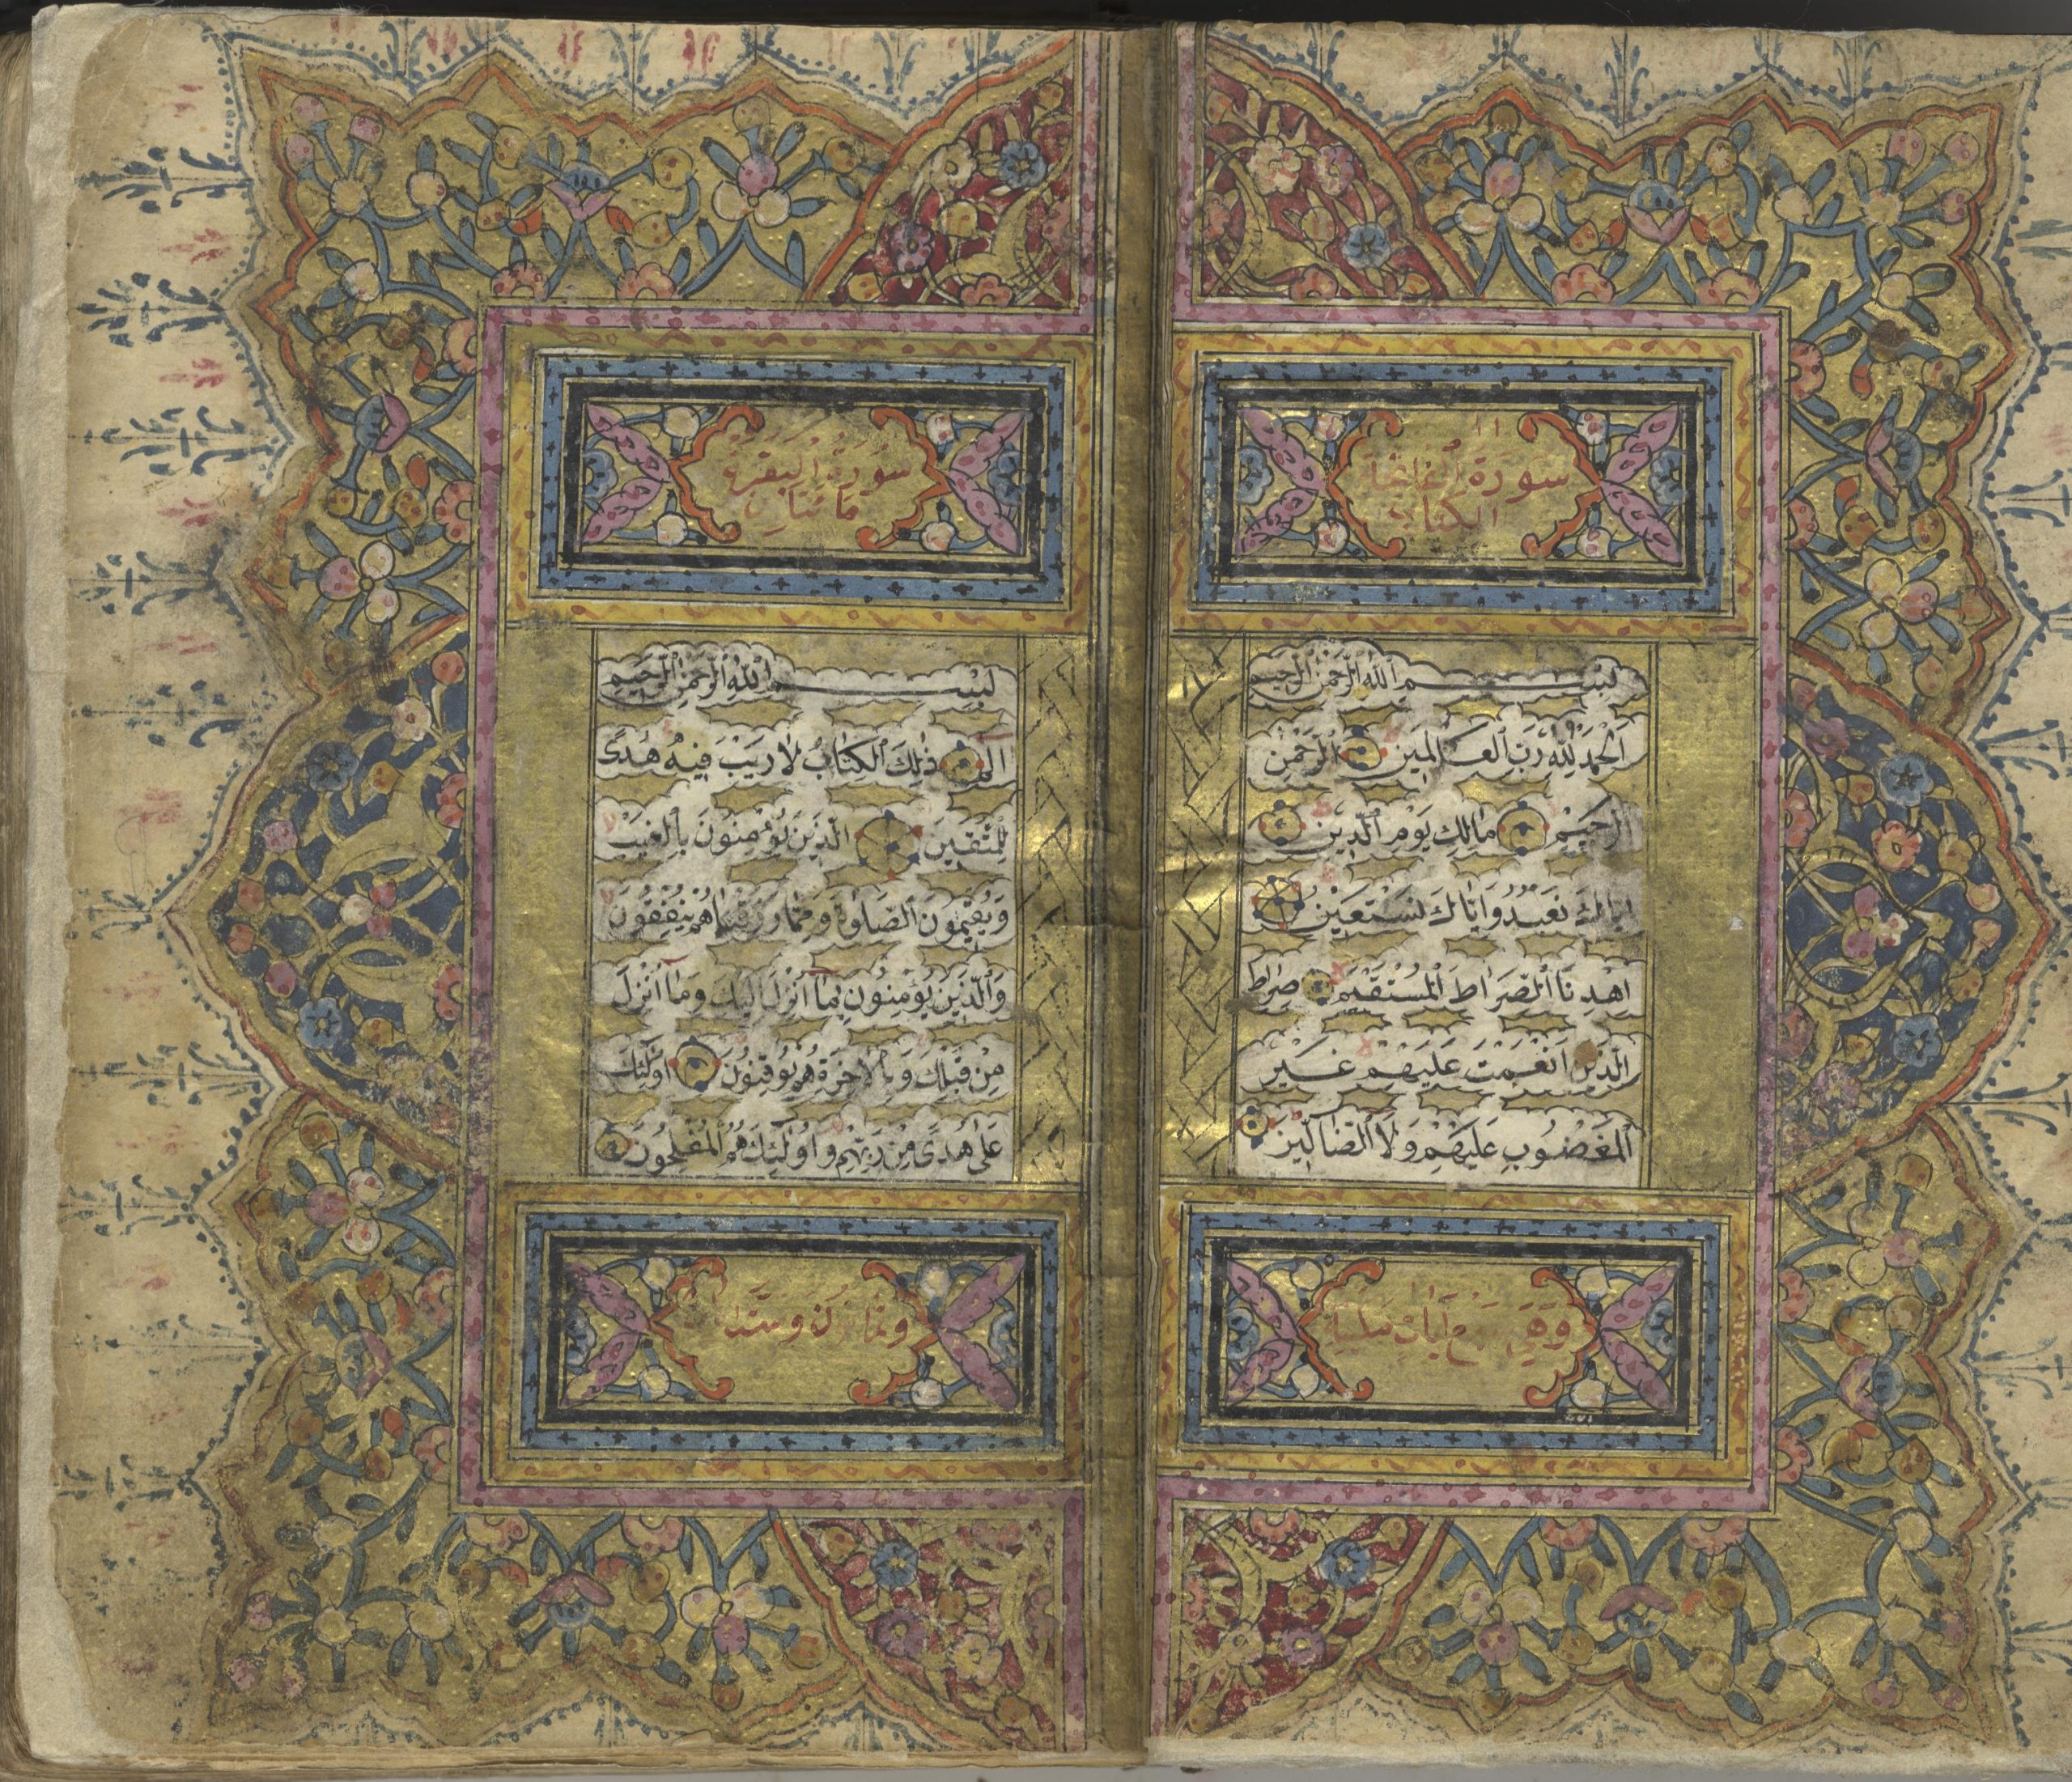 سورة الفاتحة
الكتاب
بِسْمِ اللهِ الرَّحْمٰنِ الرَّحِيمِ
اَلْحَمْدُ لِلّٰهِ رَبِّ الْعَالَمِينَ الرَّحْمٰنِ
الرَّحِيمِ مَالِكِ يَوْمِ الدِّينِ
اِيَّاكَ نَعْبُدُ وَاِيَّاكَ نَسْتَعِينُ
اِهْدِنَا الصِّرَاطَ الْمُسْتَقِيمَ صِرَاطَ
الَّذِينَ اَنْعَمْتَ عَلَيْهِمْ غَيْرِ
الْمَغْضُوبِ عَلَيْهِمْ وَلَا الضَّالِّينَ
وهي ايات
سورة البقرة
مائتان
بِسْمِ اللهِ الرَّحْمٰنِ الرَّحِيمِ
الٓمٓ ذٰلِكَ الْكِتَابُ لَا رَيْبَ فِيهِ هُدًى
لِلْمُتَّقِينَ الَّذِينَ يُؤْمِنُونَ بِالْغَيْبِ
وَيُقِيمُونَ الصَّلٰوةَ وَمِمَّا رَزَقْنَاهُمْ يُنْفِقُونَ
وَالَّذِينَ يُؤْمِنُونَ بِمَا اُنْزِلَ اِلَيْكَ وَمَا اُنْزِلَ
مِنْ قَبْلِكَ وَبِالْاٰخِرَةِ هُمْ يُوقِنُونَ اُولٰئِكَ
عَلٰى هُدًى مِنْ رَبِّهِمْ وَاُولٰئِكَ هُمُ الْمُفْلِحُونَ
وثمانون وست